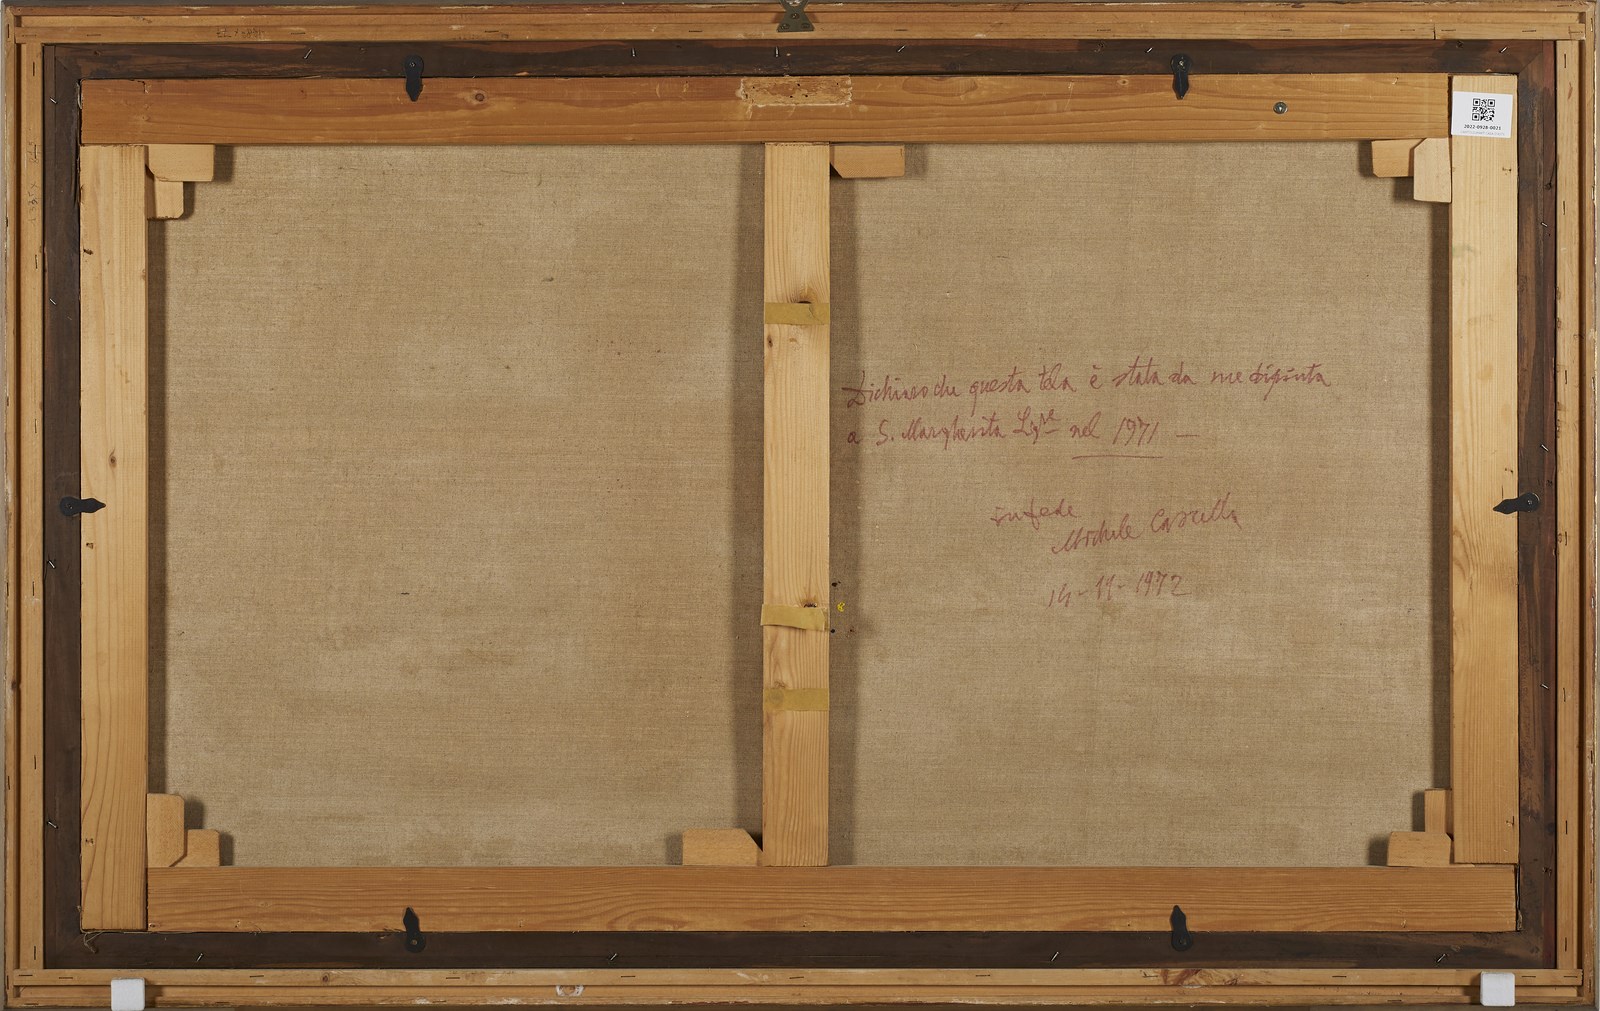 Dichiaro che questa tela è stata da me dipinta
a S. Margherita Lig.re nel 1971 —
in fede
Michele Cascella
14-11-1972
2022-0928-0021